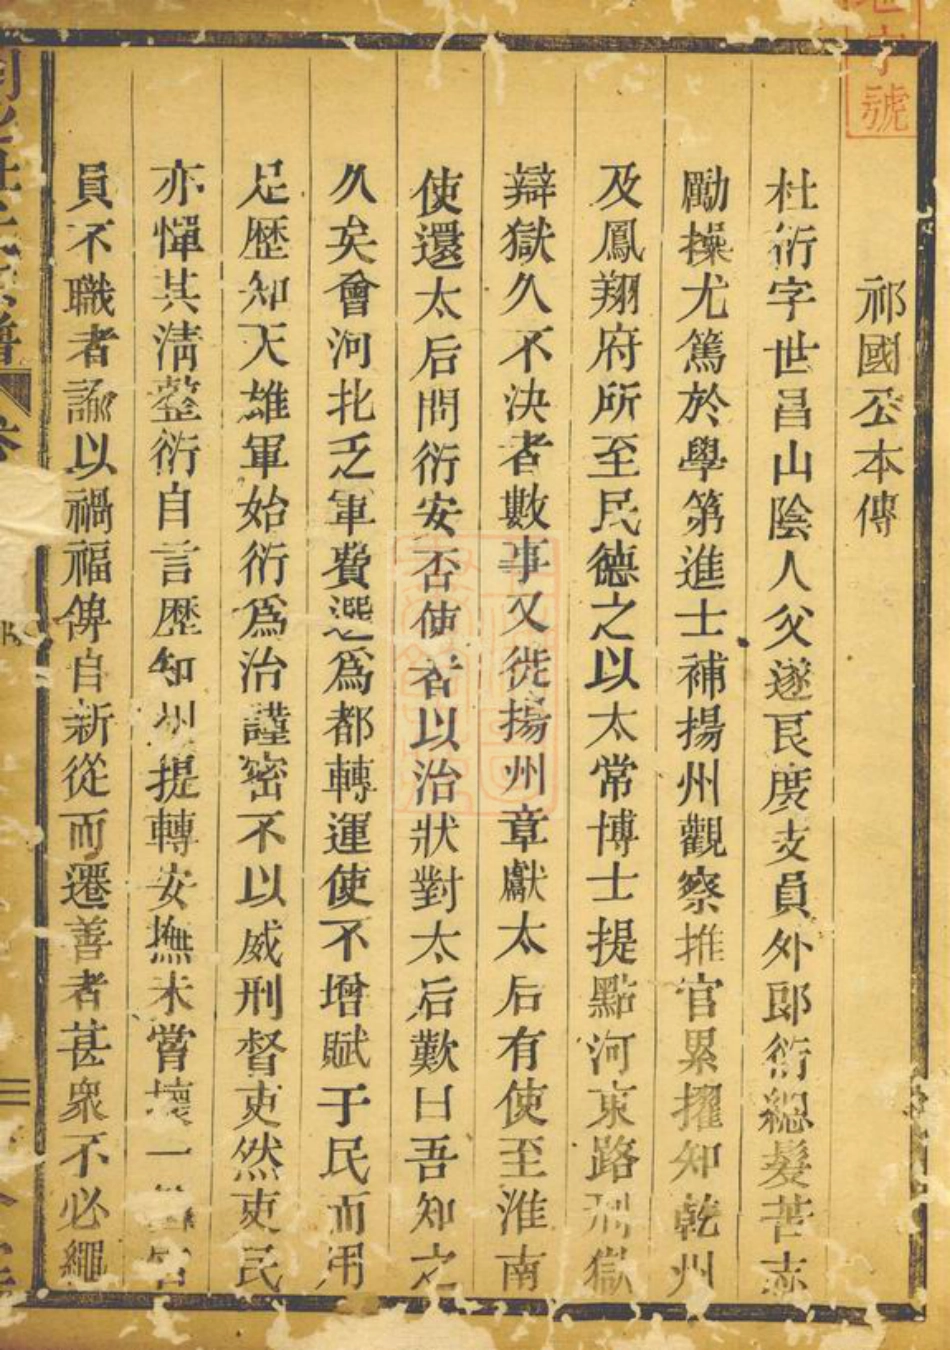 號
祁國公本傳
杜衍字世昌山陰人父遂良度支員外郎衍總髮苦志
勵操尤篤於學第進士補揚州觀察推官累擢知乾州
及鳳翔府所至民德之以太常博士提點河東路刑獄
辯獄久不決者數事又徙揚州章獻太后有使至淮南
使還太后問衍安否使者以治狀對太后歎曰吾知之
久矣會河北乏軍費選爲都轉運使不增賦于民而用
足歷知天雄軍始衍爲治謹密不以威刑督吏然吏民
亦憚其淸整衍自言歷知州提轉安撫未嘗壞一官
員不職者諭以禍福俾自新從而遷善者甚衆不必繩